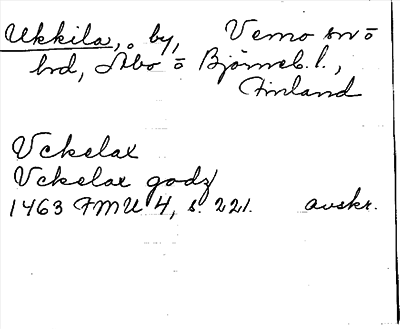 Ukkila, by, Vemo sn ō
hd, Åbo ō Björneb. l.,
Finland
Vckelax
Vckelax godz
1463 FMU 4, s. 221. avskr.